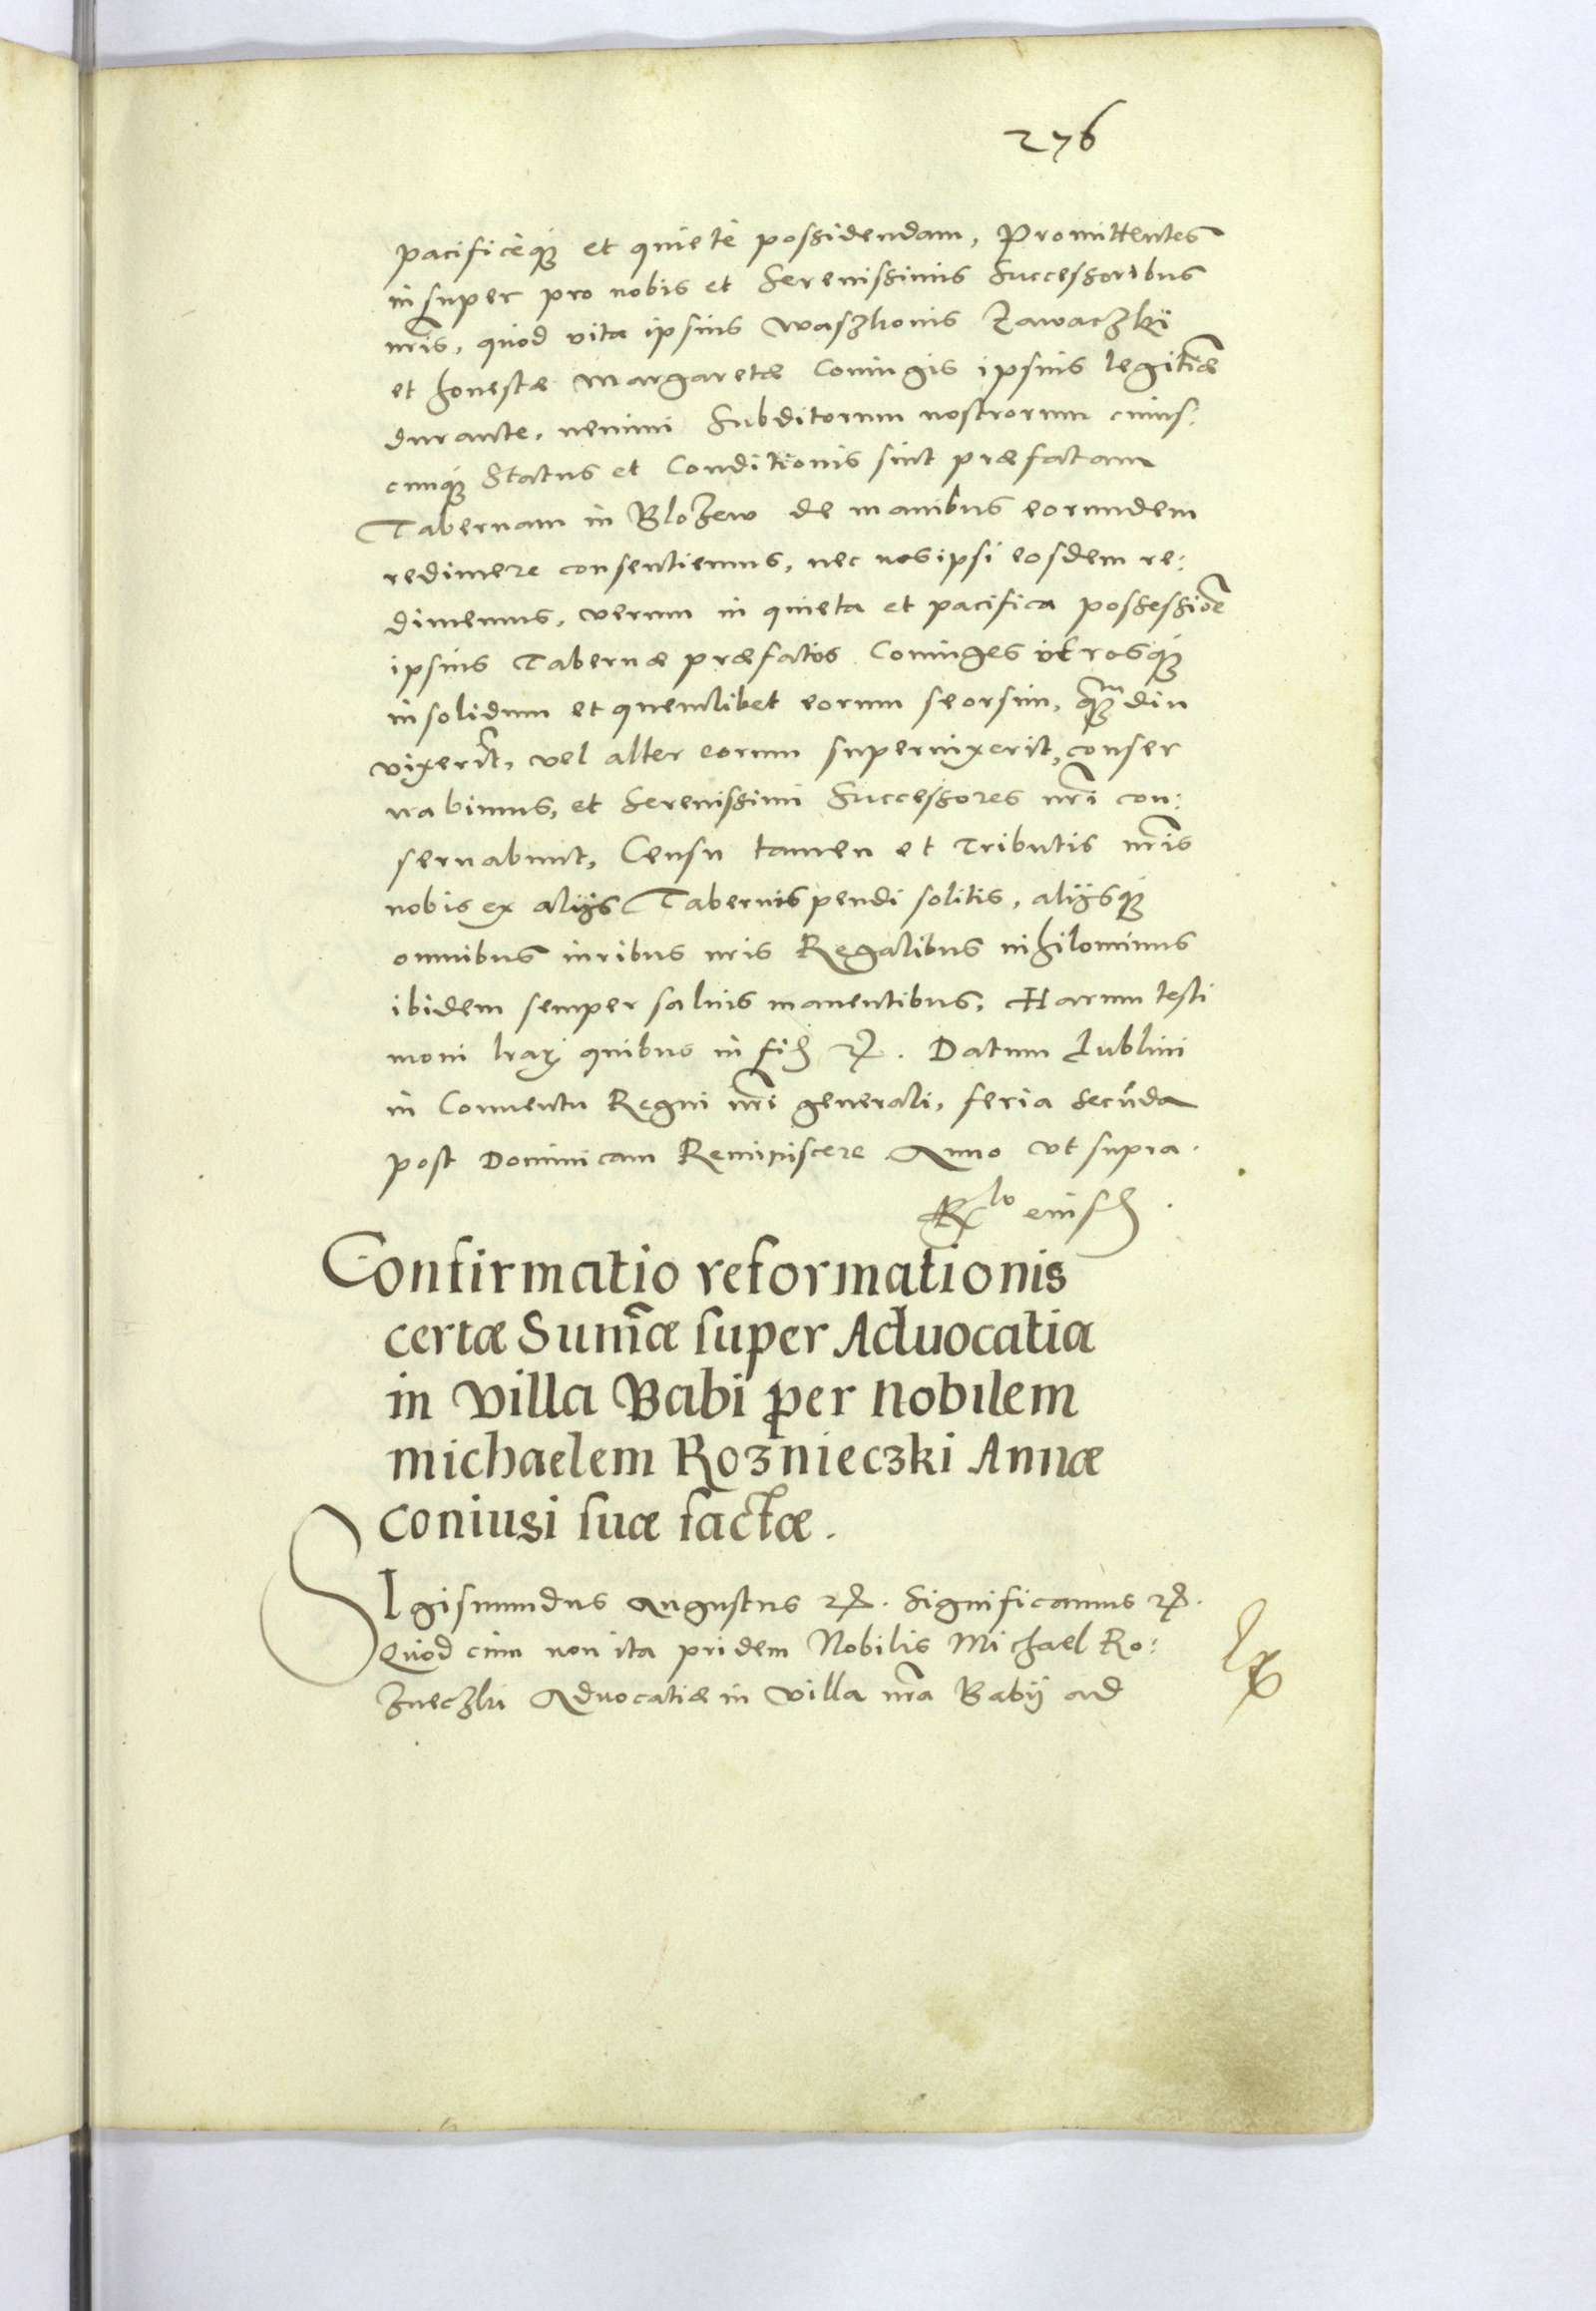 276
pacificeq́ꝫ et quietè possidendam, Promittentes
insuper pro nobis et Serenissimis Successoribus
nr̃is, quod vita ipsius Waszkonis Zawaczki
et honestæ Margaretæ Coniugis ipsius legitĩæ
durante, nemini Subditorum nostrorum cuius:
cunq́ꝫ Status et Conditionis sint præfatam
Tabernam in Blozew de manibus eorundem
redimere consentiemus, nec nos ipsi eosdem re:
dimemus, verum in quieta et pacifica possessiõe
ipsius Tabernæ præfatos Coniuges utrosq́ꝫ
insolidum et quemlibet eorum seorsim, qꝫᵐdiu
vixerĩt, vel alter eorum superuixerit, conser
uabimus, et Serenissimi Successores nr̃i con:
seruabunt, Censu tamen et Tributis nr̃is
nobis ex alijs Tabernis pendi solitis, alijsq́ꝫ
omnibus iuribus nris Regalibus nihilominus
ibidem semper saluis manentibus, Harum testi
moni lrarꝫ quibus in fiꝫ ꝛꝫ. Datum Lublini
in Conuentu Regni nr̃i generali, feria secũda
post Dominicam Reminiscere Anno vt supra.
Rlo eiusꝫ.
Confirmatio reformationis
certæ Sum̃æ super Aduocatia
in Villa Babi per Nobilem
Michaelem Roznieczki Annæ
coniugi suæ factæ.
SIgismundus Augustus ꝛꝫ. Significamus ꝛꝫ.
Quod cum non ita pridem Nobilis Michael Ro:
zneczki Aduocatiæ in Villa nr̃a Babij ad